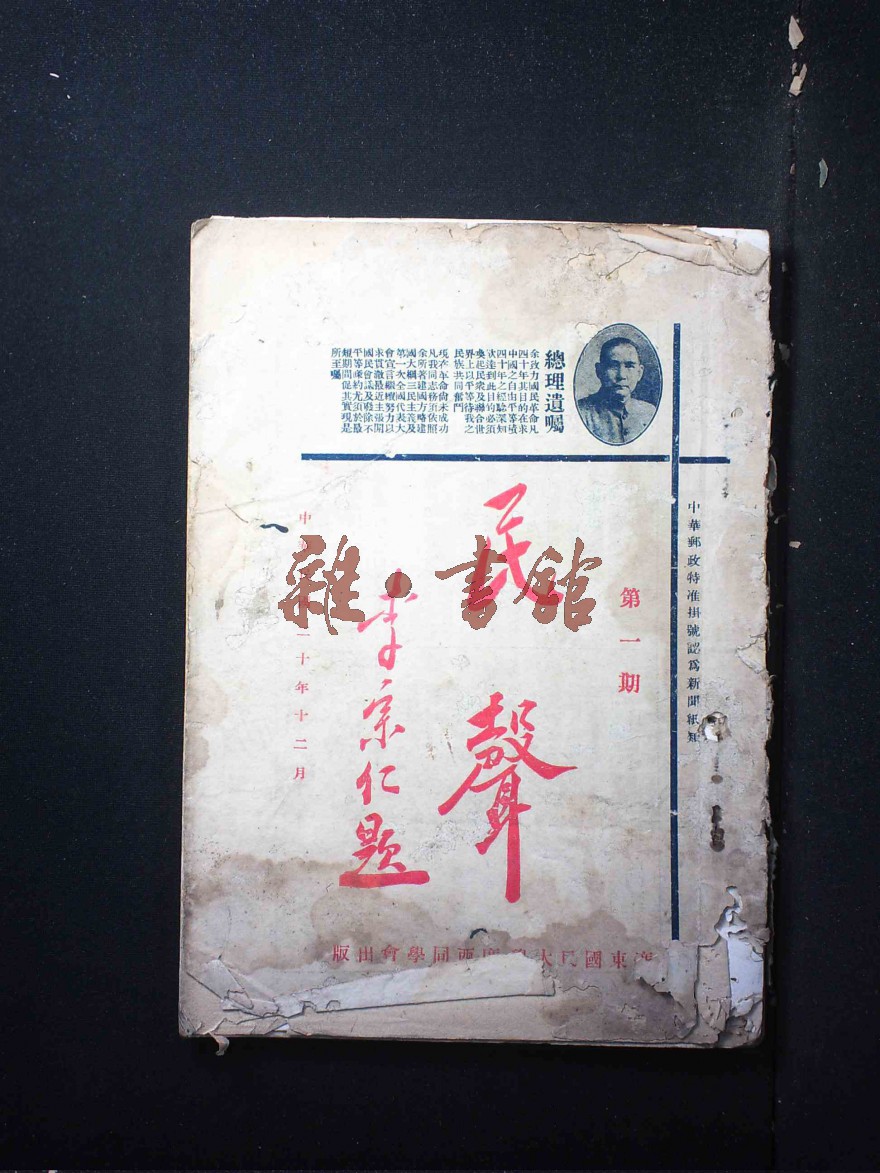 總理遺囑
余致力國民革命凡
四十年其目的在求
中國之自由平等積
四十年之經驗深知
欲達到此目的必須
喚起民衆及聯合世
界上以平等待我之
民族共同奮鬥
現在革命尚未成功
凡我同志務須依照
余所著建國方略建
國大綱三民主義及
第一次全國代表大
會宣言繼續努力以
求貫徹最近主張開
國民會議及廢除不
平等條約尤須於最
短期間促其實現是
所至囑
中華郵政特准掛號認爲新聞紙類
第一期
民聲
李宗仁題
中二十年十二月
廣東國民大學廣西同學會出版
雜·書館